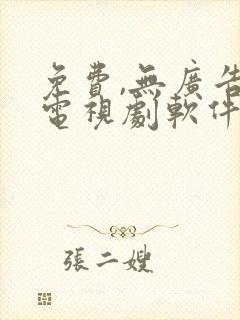 免費,無廣告
電視劇軟件
張二嫂